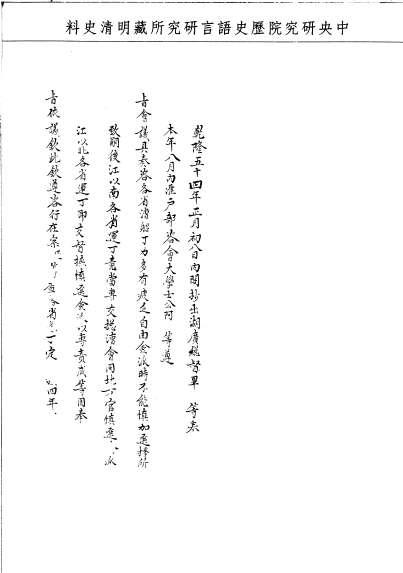 中央研究院歷史語言研究所藏明清史料
乾隆五十四年正月初八日內閣抄出湖廣總督畢 等奏
本年八月內准戶部咨會大學士公阿 等遵
旨會議具奏各省漕船丁力多有疲乏自由僉派時不能慎加選擇所
致嗣後江以南各省運丁竟當專交總漕會同
江以北各省運丁即交督撫慎選僉以專責成等因奉
旨依議欽此欽遵咨行在案